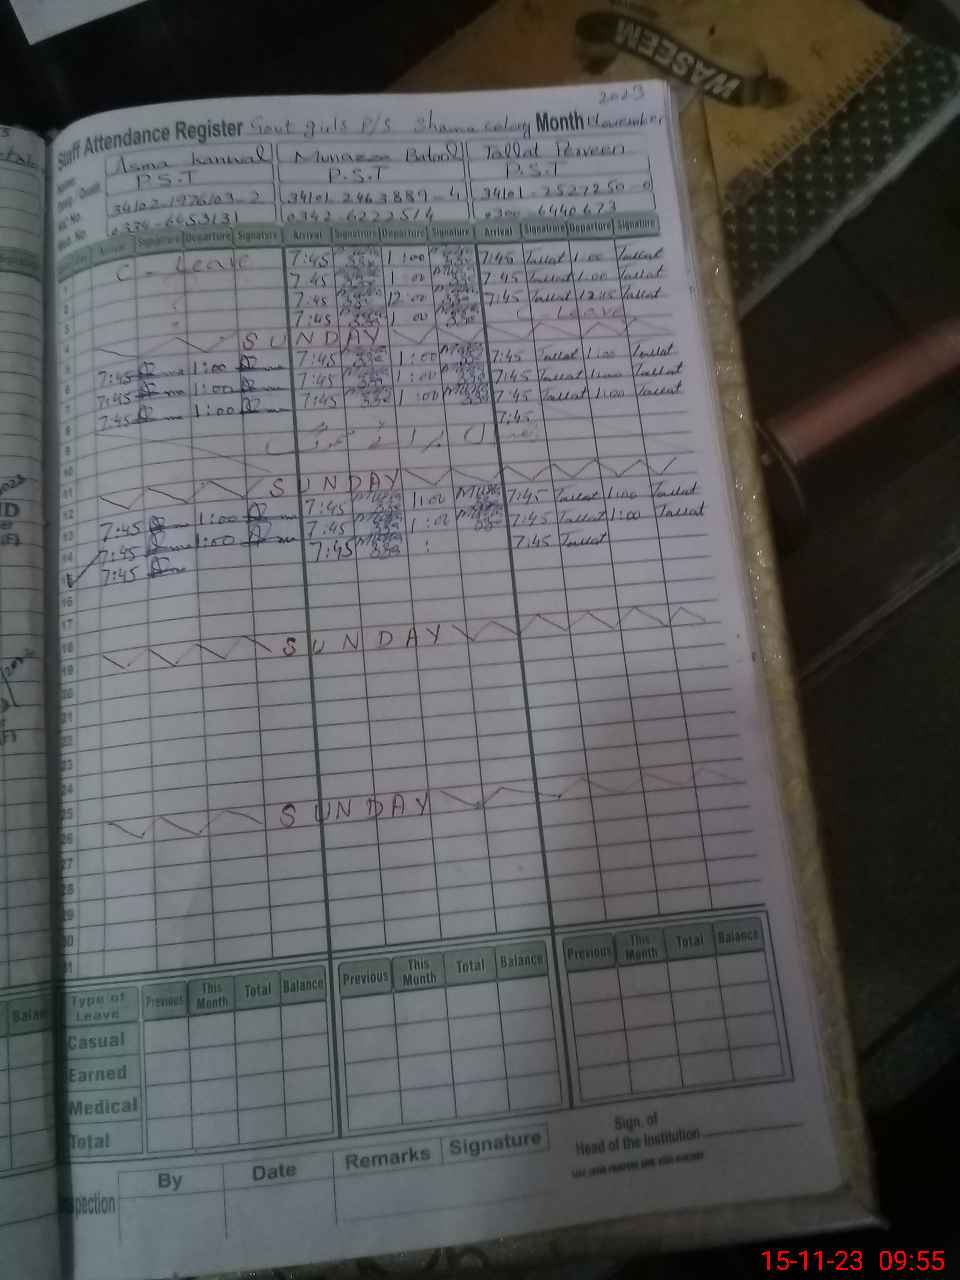 WASEEM
2023
Staff Attendance Register Govt girls P/S Shama colony Month November
Asma Kanwal Munazza Batool Tallat Perveen
P.S.T P.S.T P.S.T
34102-1976103-2 34101-2463889-4 34101-2527250-0
0334-6653131 0342-6222514 0300-6440673
Arrival Signature Departure Signature Arrival Signature Departure Signature Arrival Signature Departure Signature
C - Leave 7:45 1:00 7:45 Tallat 1:00 Tallat
7:45 1:00 7:45 Tallat 1:00 Tallat
7:45 12:00 7:45 Tallat 12:15 Tallat
7:45 1:00 C - Leave
SUNDAY
7:45 1:00 7:45 1:00 7:45 Tallat 1:00 Tallat
7:45 1:00 7:45 1:00 7:45 Tallat 1:00 Tallat
7:45 1:00 7:45 1:00 7:45 Tallat 1:00 Tallat
7:45
SUNDAY
7:45 1:00 7:45 1:00 7:45 Tallat 1:00 Tallat
7:45 1:00 7:45 1:00 7:45 Tallat 1:00 Tallat
7:45 7:45 : 7:45 Tallat
16
17
18 SUNDAY
19
20
21
22
23
24
25 SUNDAY
26
27
28
29
30
31
Type of Leave Previous This Month Total Balance Previous This Month Total Balance Previous This Month Total Balance
Casual
Earned
Medical
Total
By Date Remarks Signature
Inspection
Sign. of
Head of the Institution
15-11-23 09:55